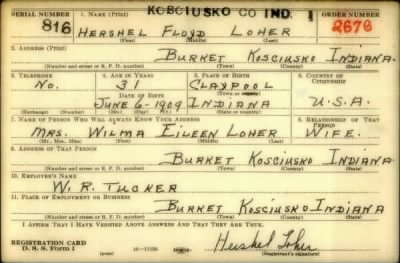 KOSCIUSKO CO IND. 1
SERIAL NUMBER 1. NAME (Print) ORDER NUMBER
816 HERSHEL FLOYD LOHER 2676
(First) (Middle) (Last)
2. ADDRESS (Print)
BURKET KOSCIUSKO INDIANA
(Number and street or R. F. D. number) (Town) (County) (State)
3. TELEPHONE 4. AGE IN YEARS 5. PLACE OF BIRTH 6. COUNTRY OF CITIZENSHIP
No. 31 CLAYPOOL
DATE OF BIRTH (Town or county)
JUNE 6-1909 INDIANA U.S.A.
(Exchange) (Number) (Mo.) (Day) (Yr.) (State or country)
7. NAME OF PERSON WHO WILL ALWAYS KNOW YOUR ADDRESS 8. RELATIONSHIP OF THAT PERSON
MRS. WILMA EILEEN LOHER WIFE.
(Mr., Mrs., Miss) (First) (Middle) (Last)
9. ADDRESS OF THAT PERSON
BURKET KOSCIUSKO INDIANA
(Number and street or R. F. D. number) (Town) (County) (State)
10. EMPLOYER'S NAME
W. R. TUCKER
11. PLACE OF EMPLOYMENT OR BUSINESS
BURKET KOSSIUSKO INDIANA
(Number and street or R. F. D. number) (Town) (County) (State)
I AFFIRM THAT I HAVE VERIFIED ABOVE ANSWERS AND THAT THEY ARE TRUE.
REGISTRATION CARD Hershel Loher
D. S. S. Form 1 (Registrant's signature)